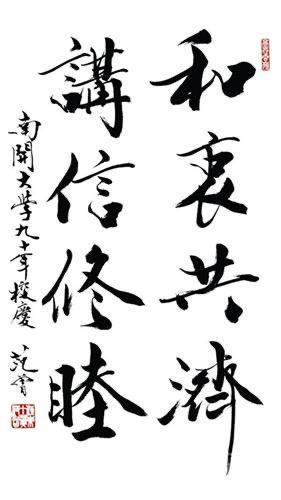 和衷共濟
講信修睦
南開大學九十年校慶
范曾